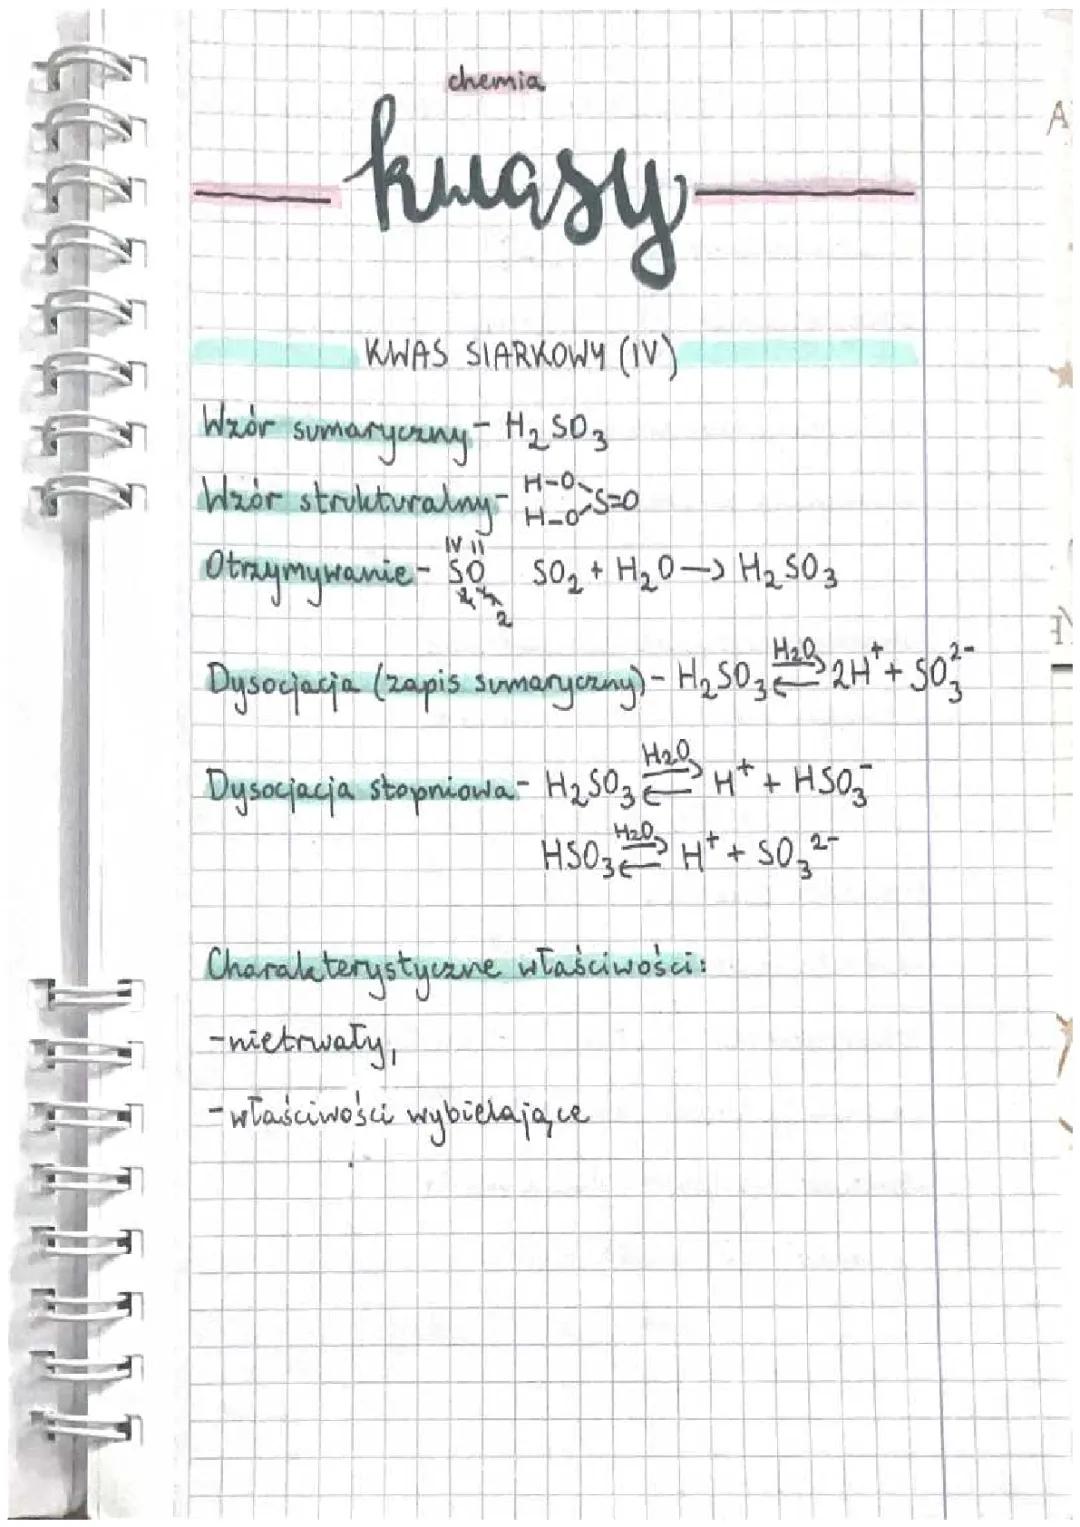 chemia
kwasy
KWAS SIARKOWY (IV)
Wzór sumaryczny - H₂SO₃
Wzór strukturalny - H-O
S=O
H-O
Otrzymywanie - SO SO₂ + H₂O → H₂SO₃
IV II
2
Dysocjacja (zapis sumaryczny) - H₂SO₃ ⇄ 2H⁺ + SO₃²⁻
H₂O
Dysocjacja stopniowa - H₂SO₃ ⇄ H⁺ + HSO₃⁻
H₂O
HSO₃ ⇄ H⁺ + SO₃²⁻
H₂O
Charakterystyczne właściwości:
- nietrwały,
- właściwości wybielające
A